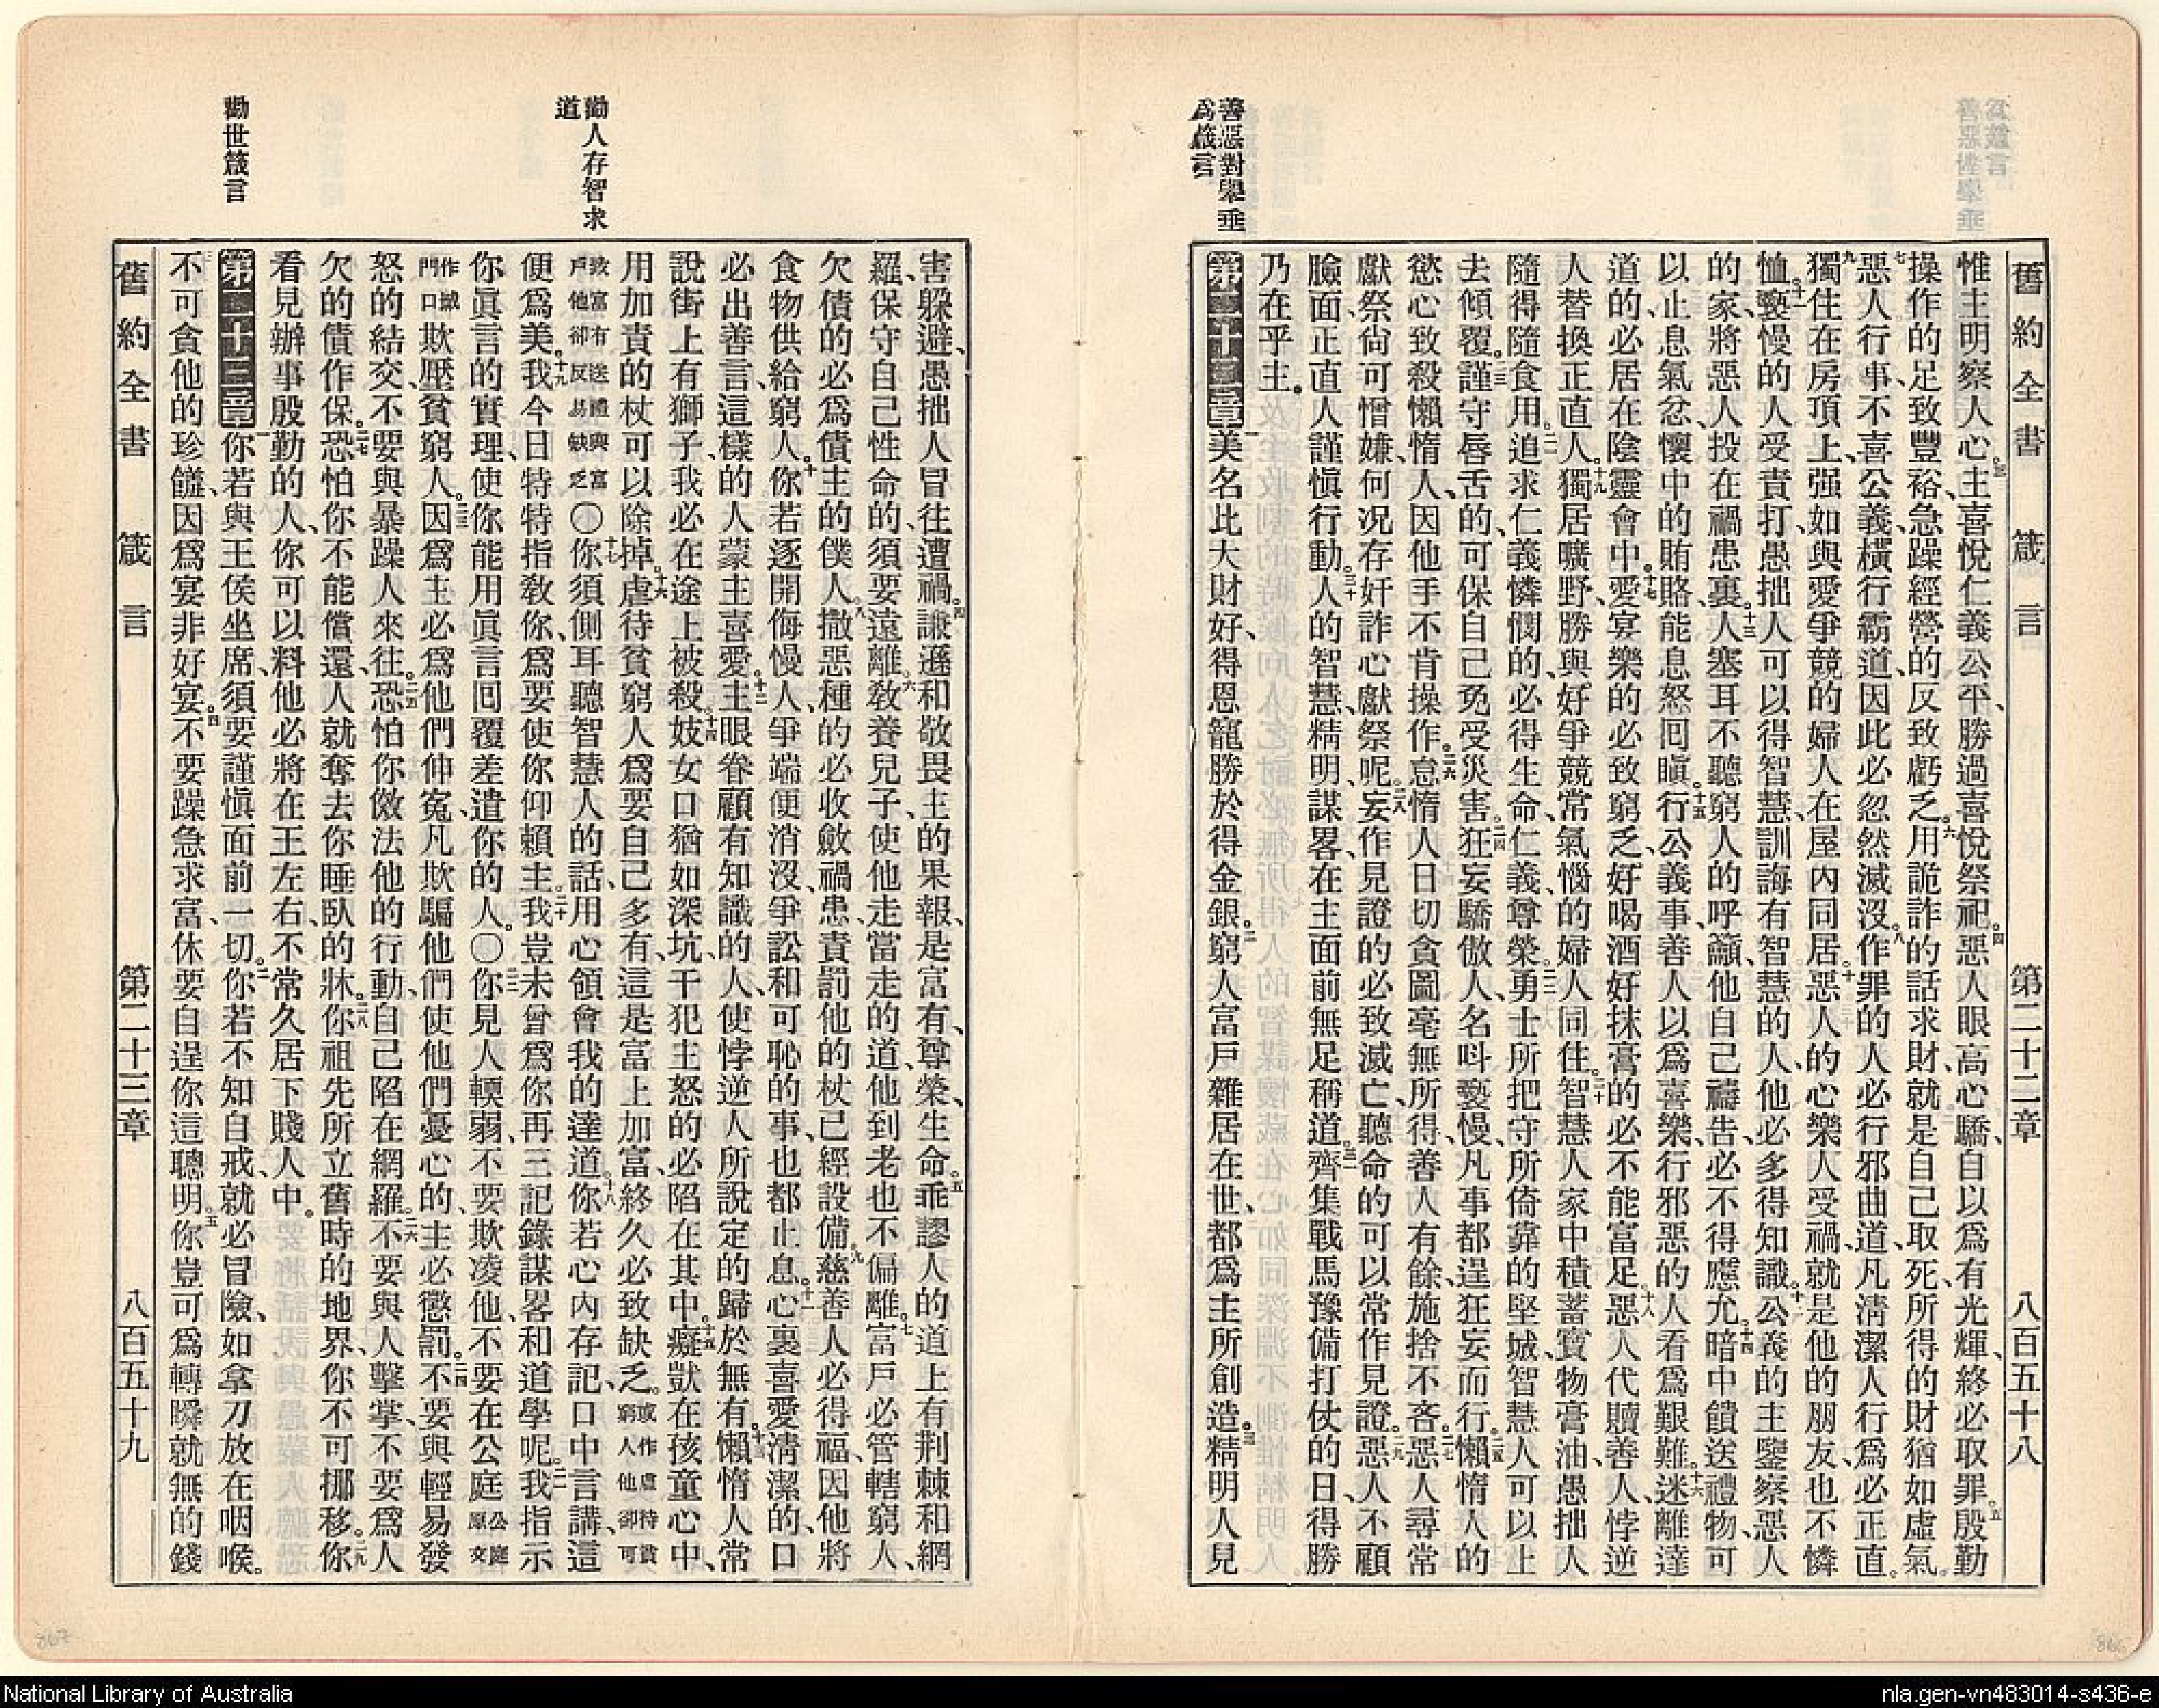 善惡對舉垂
爲箴言
舊約全書 箴言 第二十二章 八百五十八
惟主明察人心。三主喜悅仁義公平、勝過喜悅祭祀。四惡人眼高心驕、自以爲有光輝、終必取罪。五殷勤
操作的足致豐裕、急躁經營的、反致虧乏。六用詭詐的話求財、就是自己取死、所得的財猶如虛氣。
七惡人行事、不喜公義、橫行霸道、因此必忽然滅沒。八作罪的人必行邪曲道、凡淸潔人行爲必正直。
九獨住在房頂上、强如與愛爭競的婦人在屋內同居。十惡人的心樂人受禍、就是他的朋友也不憐
恤。十一褻慢的人受責打、愚拙人可以得智慧、訓誨有智慧的人、他必多得知識。十二公義的主鑒察惡人
的家、將惡人投在禍患裏。十三人塞耳不聽窮人的呼籲、他自己禱告、必不得應允。十四暗中饋送禮物、可
以止息氣忿、懷中的賄賂、能息怒回瞋。十五行公義事、善人以爲喜樂、行邪惡的人看爲艱難。十六迷離達
道的、必居在陰靈會中。十七愛宴樂的必致窮乏、好喝酒好抹膏的必不能富足。十八惡人代贖善人、悖逆
人替換正直人。十九獨居曠野、勝與好爭競常氣惱的婦人同住。二十智慧人家中積蓄寶物膏油、愚拙人
隨得隨食用。二一追求仁義憐憫的、必得生命、仁義、尊榮。二二勇士所把守所倚靠的堅城、智慧人可以上
去傾覆。二三謹守唇舌的、可保自己免受災害。二四狂妄驕傲人、名呌褻慢、凡事都逞狂妄而行。二五懶惰人的
慾心致殺懶惰人、因他手不肯操作。二六怠惰人日切貪圖、毫無所得、善人有餘、施捨不吝。二七惡人尋常
獻祭、尙可憎嫌、何况存奸詐心獻祭呢。二八妄作見證的必致滅亡、聽命的可以常作見證。二九惡人不顧
臉面、正直人謹愼行動。三十人的智慧、精明、謀畧、在主面前無足稱道。三一齊集戰馬、豫備打仗的日、得勝
乃在乎主。
第二十二章 一美名比大財好、得恩寵勝於得金銀。二窮人富戶雜居在世、都爲主所創造。三精明人見
勸人存智求
道
勸世箴言
害躱避、愚拙人冒往遭禍。四謙遜和敬畏主的果報、是富有、尊榮、生命。五乖謬人的道上有荆棘和網
羅、保守自己性命的、須要遠離。六敎養兒子、使他走當走的道、他到老也不偏離。七富戶必管轄窮人、
欠債的必爲債主的僕人。八撒惡種的必收斂禍患、責罰他的杖已經設備。九慈善人必得福、因他將
食物供給窮人。十你若逐開侮慢人、爭端便消沒、爭訟和可恥的事、也都止息。十一心裏喜愛淸潔的、口
必出善言、這樣的人蒙主喜愛。十二主眼眷顧有知識的人、使悖逆人所說定的歸於無有。十三懶惰人常
說街上有獅子、我必在途上被殺。十四妓女口猶如深坑、干犯主怒的必陷在其中。十五癡獃在孩童心中、
用加責的杖可以除掉。十六虐待貧窮人爲要自己多有、這是富上加富、終久必致缺乏。或作虐待貧窮人他卻可
致富有送禮與富戶他卻反易缺乏〇十七你須側耳聽智慧人的話、用心領會我的達道、十八你若心內存記、口中言講、這
便爲美。十九我今日特特指敎你、爲要使你仰賴主。二十我豈未曾爲你再三記錄謀畧和道學呢。二一我指示
你眞言的實理、使你能用眞言回覆差遣你的人。〇二二你見人輭弱、不要欺凌他、不要在公庭公庭原文
作城門口欺壓貧窮人。二三因爲主必爲他們伸寃、凡欺騙他們使他們憂心的、主必懲罰。二四不要與輕易發
怒的結交、不要與暴躁人來往。二五恐怕你傚法他的行動、自己陷在網羅。二六不要與人擊掌、不要爲人
欠的債作保。二七恐怕你不能償還、人就奪去你睡臥的牀。二八你祖先所立舊時的地界、你不可挪移。二九你
看見辦事殷勤的人、你可以料他必將在王左右、不常久居下賤人中。
第二十三章 一你若與王侯坐席、須要謹愼面前一切。二你若不知自戒、就必冒險、如拿刀放在咽喉。
三不可貪他的珍饈、因爲宴非好宴。四不要躁急求富、休要自逞你這聰明。五你豈可爲轉瞬就無的錢
舊約全書 箴言 第二十三章 八百五十九
867
National Library of Australia
nla.gen-vn483014-s436-e